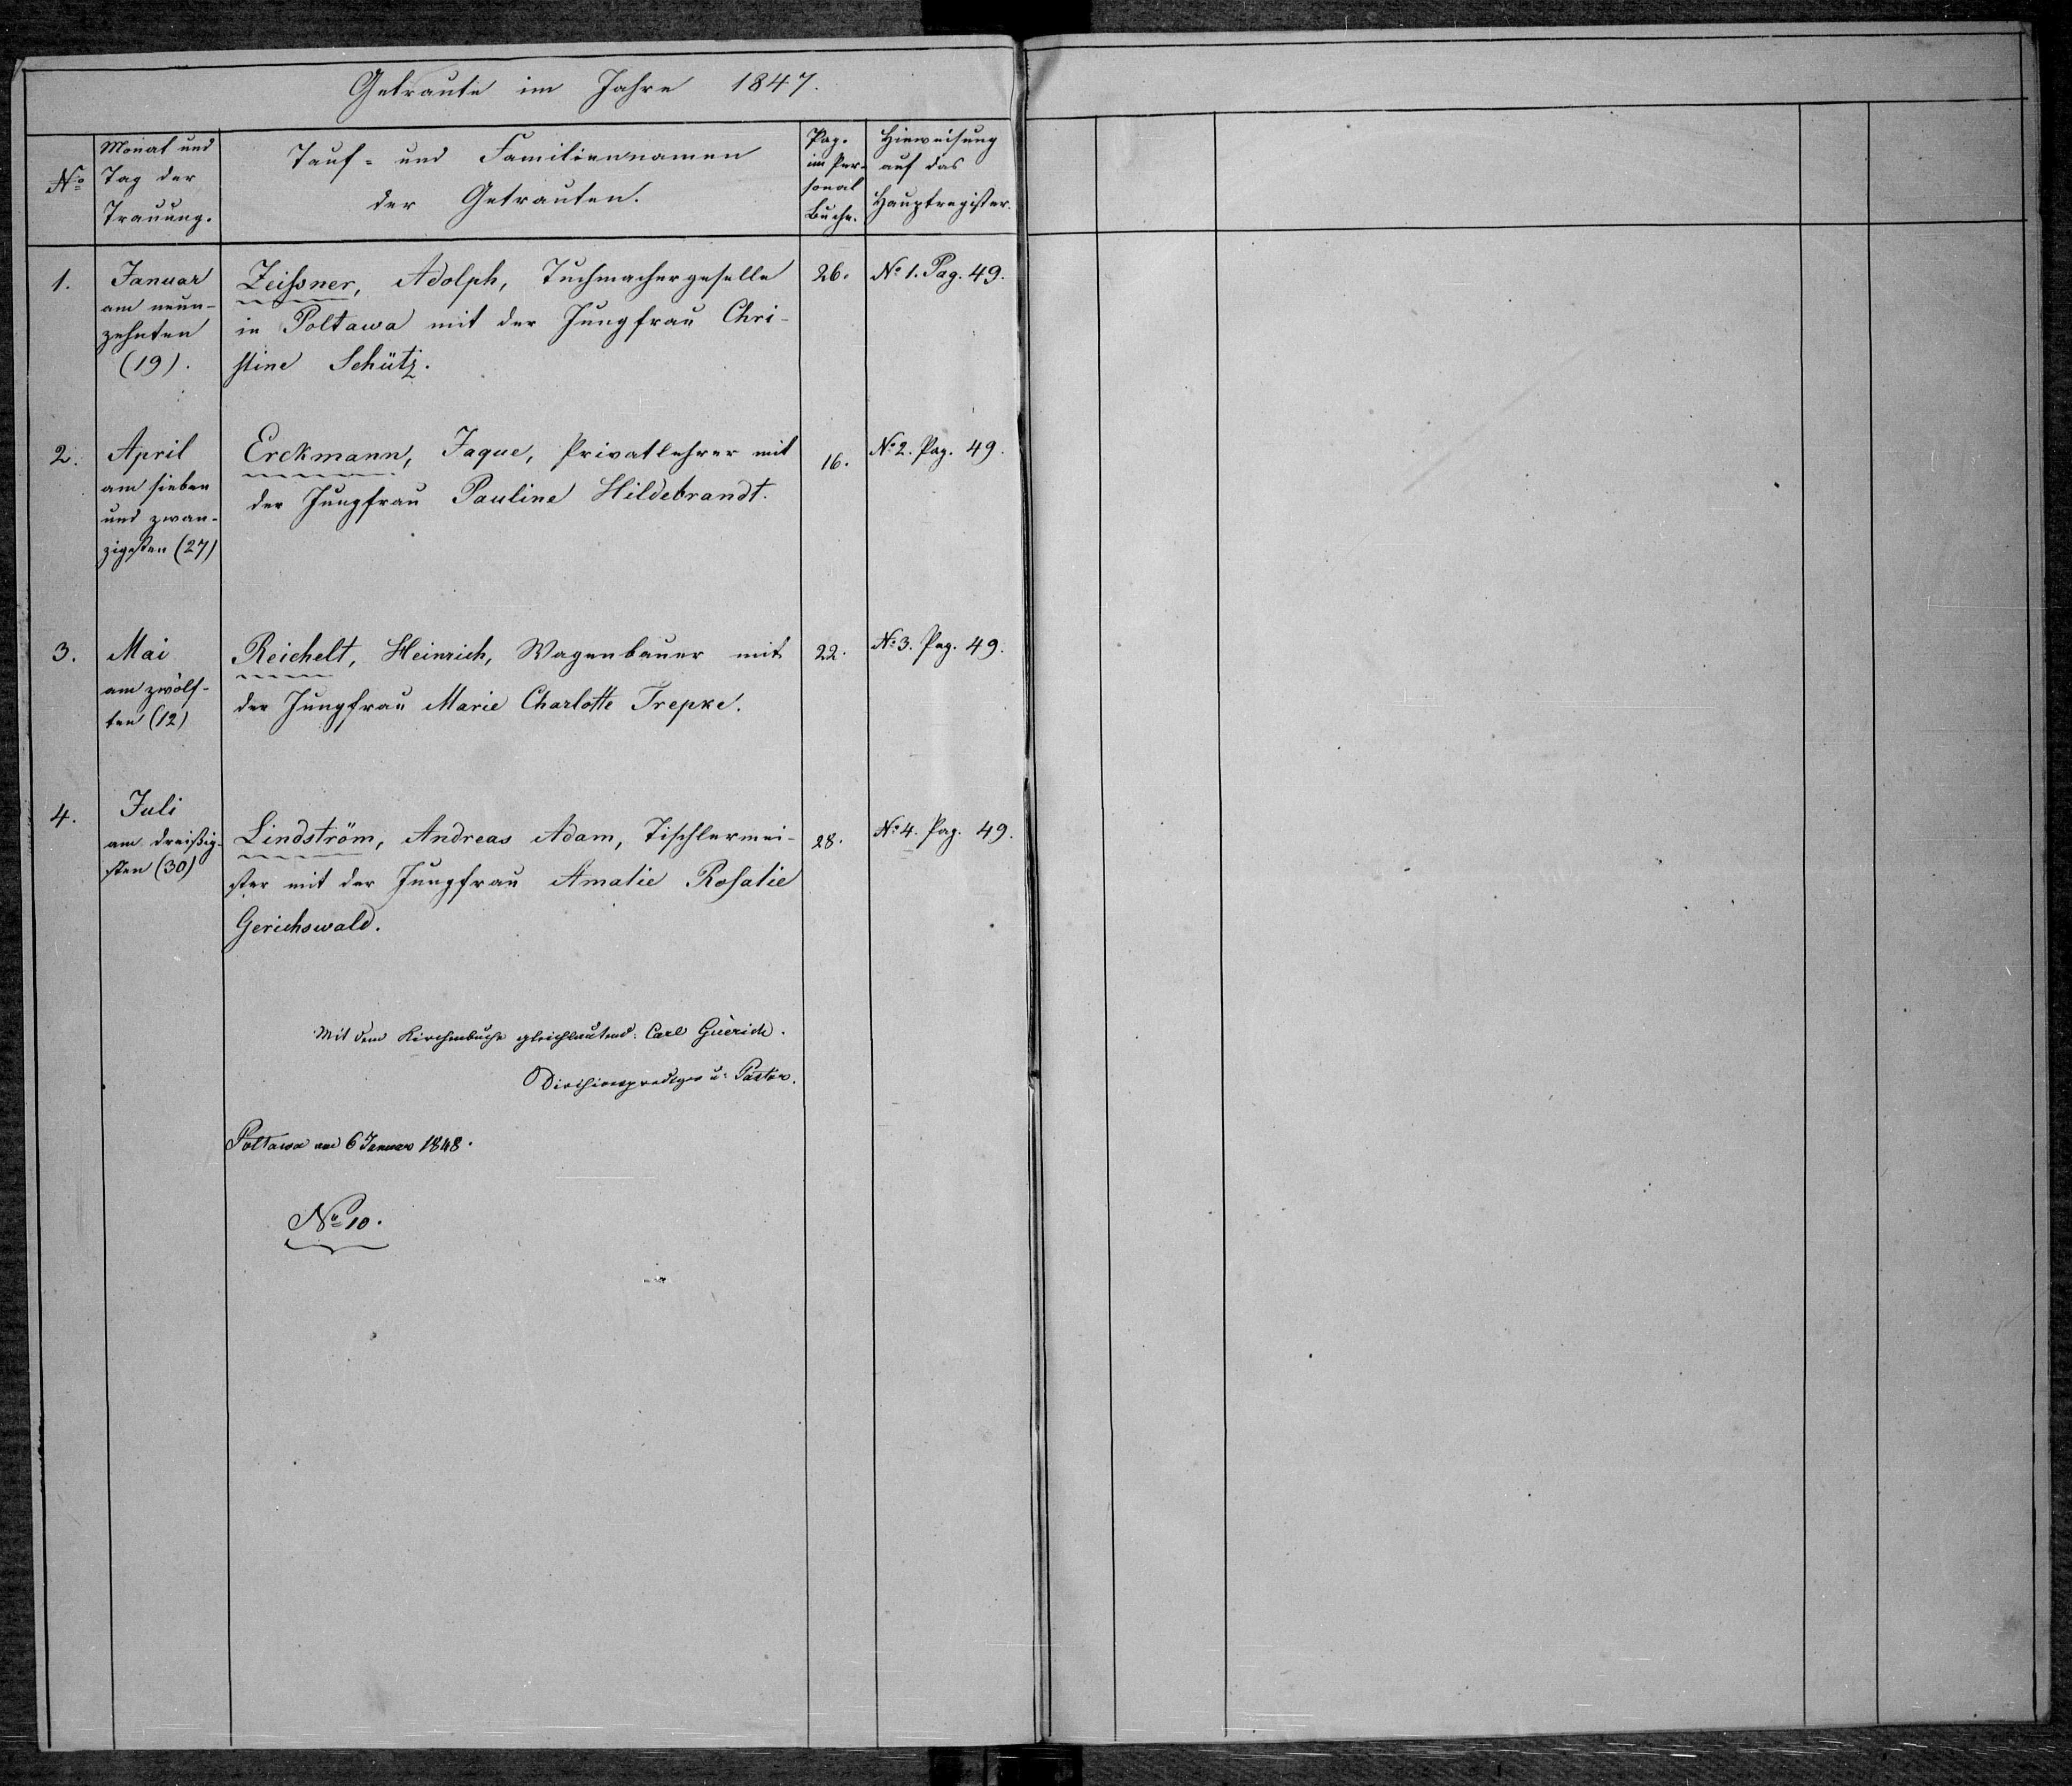 Getraute im Jahre 1847.
No
Monat und
Tag der
Trauung.
Tauf- und Familiennamen
der Getrauten.
Pag.
im Per-
sonal
Buche.
Hinweisung
auf das
Hauptregister.
1.
Januar
am neun-
zehnten
(19).
Zeißner, Adolph, Tuchmachergeselle
in Poltawa mit der Jungfrau Chri-
stine Schütz.
26.
No 1. Pag. 49.
2.
April
am sieben
und zwan-
zigsten (27)
Erckmann, Jaque, Privatlehrer mit
der Jungfrau Pauline Hildebrandt.
16.
No 2. Pag. 49.
3.
Mai
am zwölf-
ten (12)
Reichelt, Heinrich, Wagenbauer mit
der Jungfrau Marie Charlotte Trepke.
22.
No 3. Pag. 49.
4.
Juli
am dreißig-
sten (30)
Lindström, Andreas Adam, Tischlermei-
ster mit der Jungfrau Amalie Rosalie
Gerichswald.
28.
No 4. Pag. 49.
Mit dem Kirchenbuche gleichlautend: Carl
Divisionsprediger u. Pastor.
Poltawa am 6 Januar 1848.
No 10.